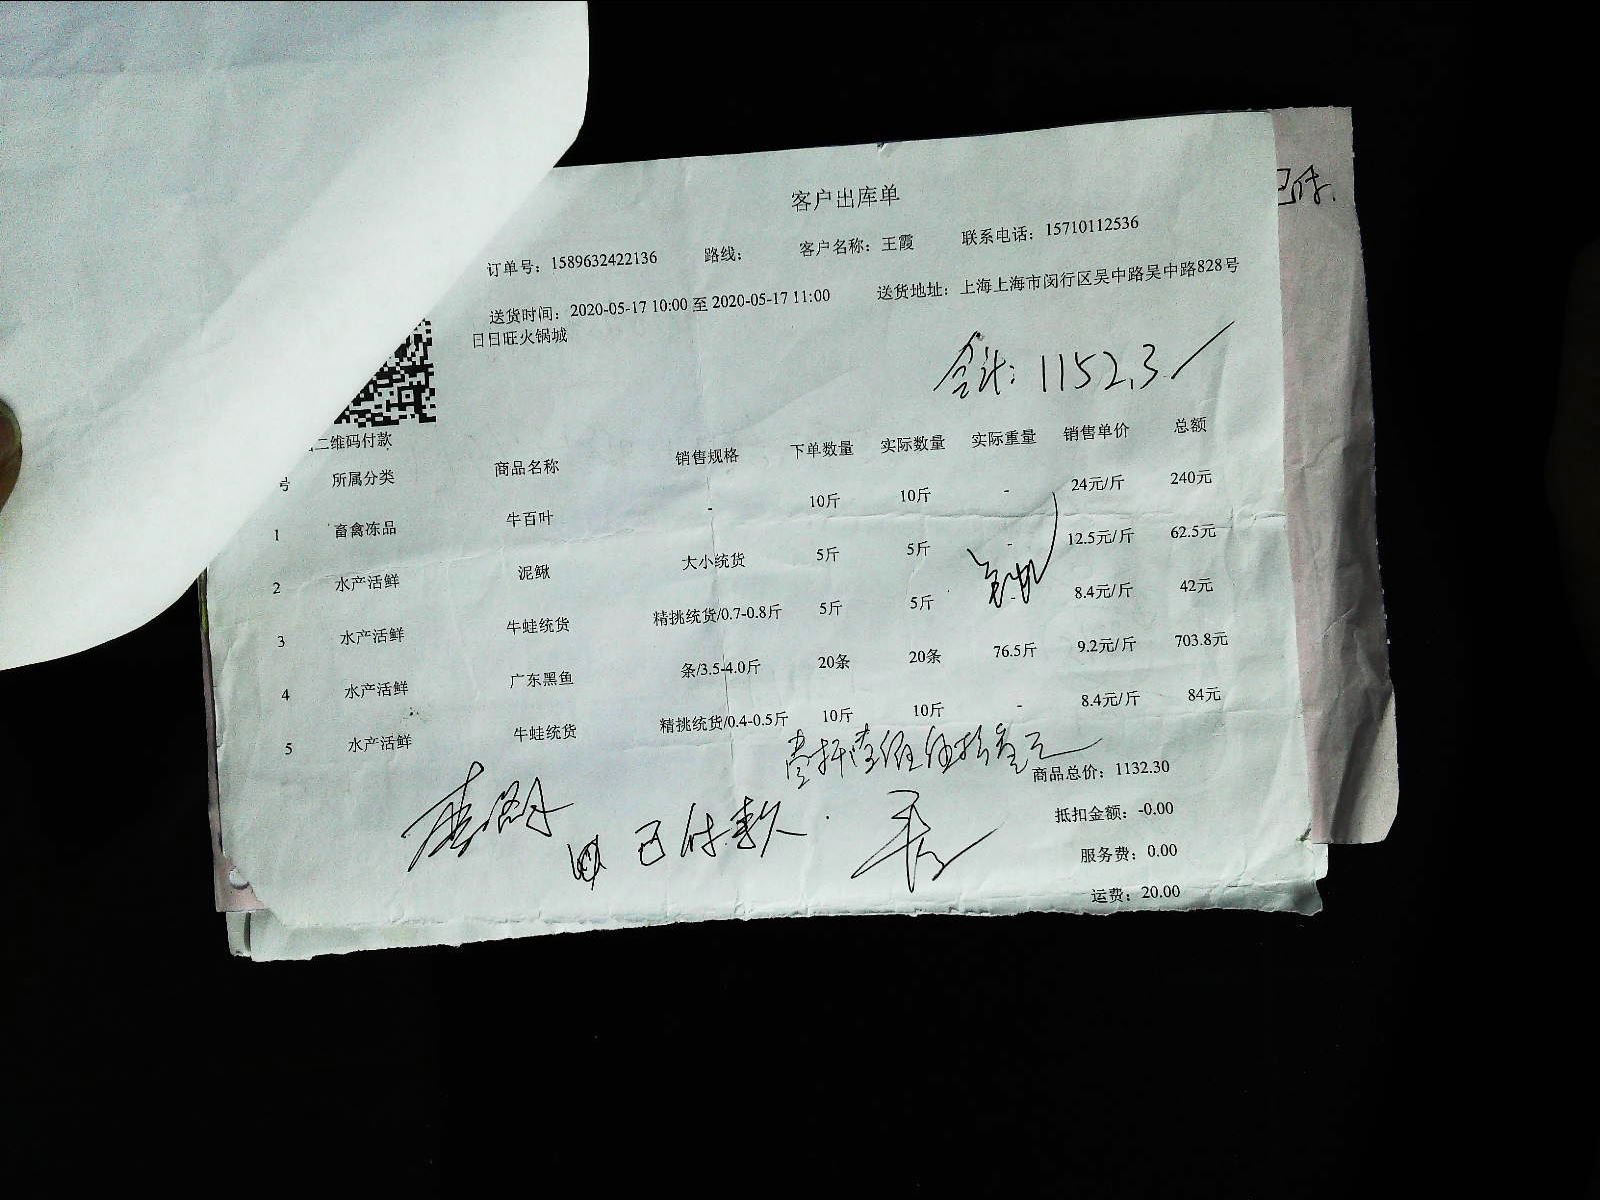 客户出库单
已付.
订单号：1589632422136 路线： 客户名称：王霞 联系电话：15710112536
送货时间：2020-05-17 10:00 至 2020-05-17 11:00 送货地址：上海上海市闵行区吴中路吴中路828号
日日旺火锅城
合计：1152.3
二维码付款
号 所属分类 商品名称 销售规格 下单数量 实际数量 实际重量 销售单价 总额
1 畜禽冻品 牛百叶 - 10斤 10斤 - 24元/斤 240元
2 水产活鲜 泥鳅 大小统货 5斤 5斤 - 12.5元/斤 62.5元
3 水产活鲜 牛蛙统货 精挑统货/0.7-0.8斤 5斤 5斤 - 8.4元/斤 42元
4 水产活鲜 广东黑鱼 条/3.5-4.0斤 20条 20条 76.5斤 9.2元/斤 703.8元
5 水产活鲜 牛蛙统货 精挑统货/0.4-0.5斤 10斤 10斤 - 8.4元/斤 84元
商品总价：1132.30
抵扣金额：-0.00
已付款.
服务费：0.00
运费：20.00